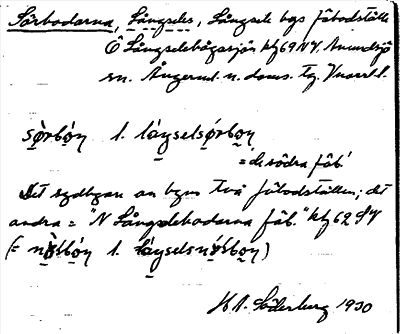 Sörbodarna, Långseles, Långsele bys fäbodställe
Ö Långselebågasjön kbl 69 NV. Anundsjö
sn. Ångerml. n. doms. tg.
sörbon l. láŋselsörbon
= 'de södra fäb.'
Det sydligare av byns två fäbodställen; det
andra = "N Långselebodarna fäb." kbl 62 SV
(= nósbon l. láŋselsnósbon)
H. N. Söderberg 1930